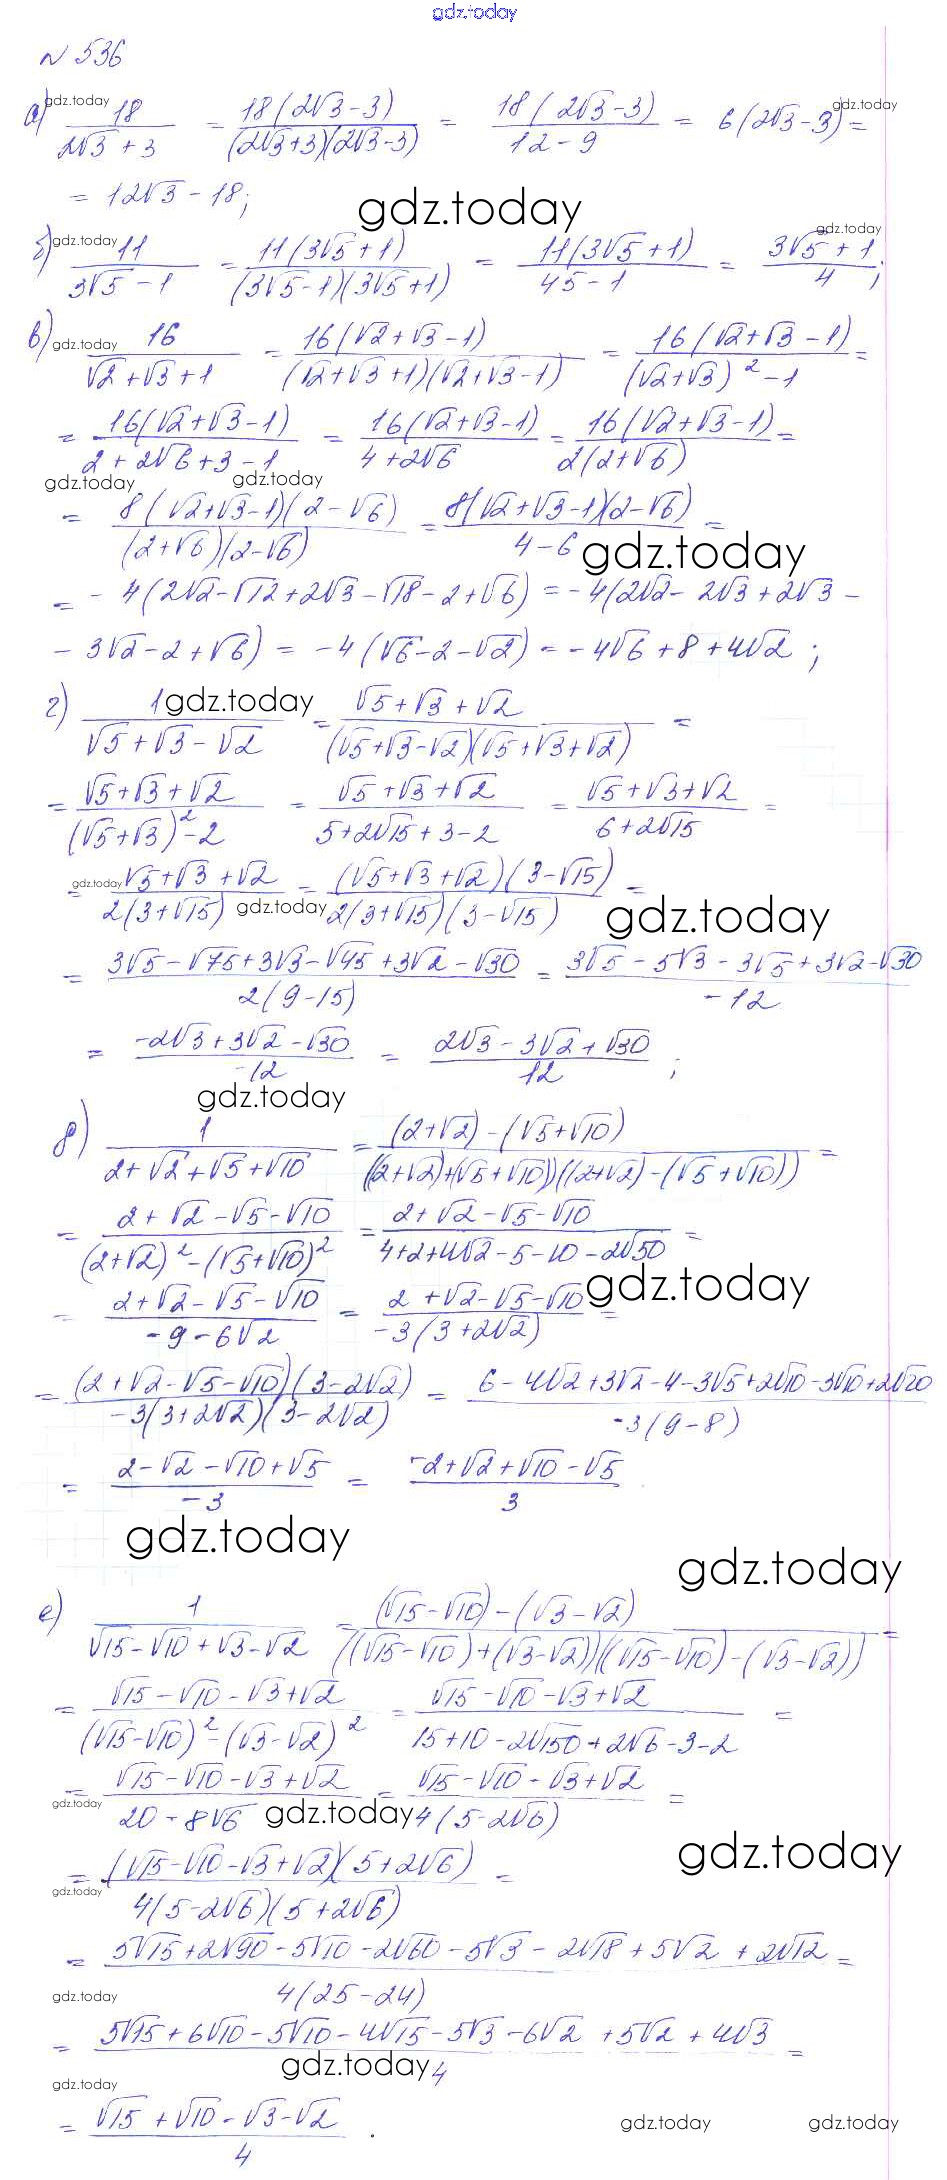 gdz.today
№ 536
а) 18/(2√3 + 3) = 18(2√3 - 3)/((2√3+3)(2√3-3)) = 18(2√3-3)/(12-9) = 6(2√3-3) =
= 12√3 - 18;
gdz.today
б) 11/(3√5 - 1) = 11(3√5+1)/((3√5-1)(3√5+1)) = 11(3√5+1)/(45-1) = (3√5+1)/4;
в) 16/(√2+√3+1) = 16(√2+√3-1)/((√2+√3+1)(√2+√3-1)) = 16(√2+√3-1)/((√2+√3)²-1) =
= 16(√2+√3-1)/(2+2√6+3-1) = 16(√2+√3-1)/(4+2√6) = 16(√2+√3-1)/(2(2+√6)) =
gdz.today gdz.today
= 8(√2+√3-1)(2-√6)/((2+√6)(2-√6)) = 8(√2+√3-1)(2-√6)/(4-6) =
gdz.today
= -4(2√2-√12+2√3-√18-2+√6) = -4(2√2-2√3+2√3-
-3√2-2+√6) = -4(√6-2-√2) = -4√6+8+4√2;
г) 1/(√5+√3-√2) = (√5+√3+√2)/((√5+√3-√2)(√5+√3+√2)) =
gdz.today
= (√5+√3+√2)/((√5+√3)²-2) = (√5+√3+√2)/(5+2√15+3-2) = (√5+√3+√2)/(6+2√15) =
= (√5+√3+√2)/(2(3+√15)) = (√5+√3+√2)(3-√15)/(2(3+√15)(3-√15)) =
gdz.today gdz.today gdz.today
= (3√5-√75+3√3-√45+3√2-√30)/(2(9-15)) = (3√5-5√3-3√5+3√2-√30)/(-12)
= (-2√3+3√2-√30)/(-12) = (2√3-3√2+√30)/12;
gdz.today
д) 1/(2+√2+√5+√10) = ((2+√2)-(√5+√10))/(((2+√2)+(√5+√10))((2+√2)-(√5+√10))) =
= (2+√2-√5-√10)/((2+√2)²-(√5+√10)²) = (2+√2-√5-√10)/(4+2+4√2-5-10-2√50) =
gdz.today
= (2+√2-√5-√10)/(-9-6√2) = (2+√2-√5-√10)/(-3(3+2√2)) =
= (2+√2-√5-√10)(3-2√2)/(-3(3+2√2)(3-2√2)) = (6-4√2+3√2-4-3√5+2√10-3√10+2√20)/(-3(9-8))
= (2-√2-√10+√5)/(-3) = (-2+√2+√10-√5)/3
gdz.today
gdz.today
е) 1/(√15-√10+√3-√2) = ((√15-√10)-(√3-√2))/(((√15-√10)+(√3-√2))((√15-√10)-(√3-√2))) =
= (√15-√10-√3+√2)/((√15-√10)²-(√3-√2)²) = (√15-√10-√3+√2)/(15+10-2√150+2√6-3-2) =
= (√15-√10-√3+√2)/(20-8√6) = (√15-√10-√3+√2)/(4(5-2√6)) =
gdz.today gdz.today
= (√15-√10-√3+√2)(5+2√6)/(4(5-2√6)(5+2√6)) =
gdz.today gdz.today
= (5√15+2√90-5√10-2√60-5√3-2√18+5√2+2√12)/(4(25-24)) =
gdz.today
= (5√15+6√10-5√10-4√15-5√3-6√2+5√2+4√3)/4 =
gdz.today
gdz.today
= (√15+√10-√3-√2)/4.
gdz.today gdz.today